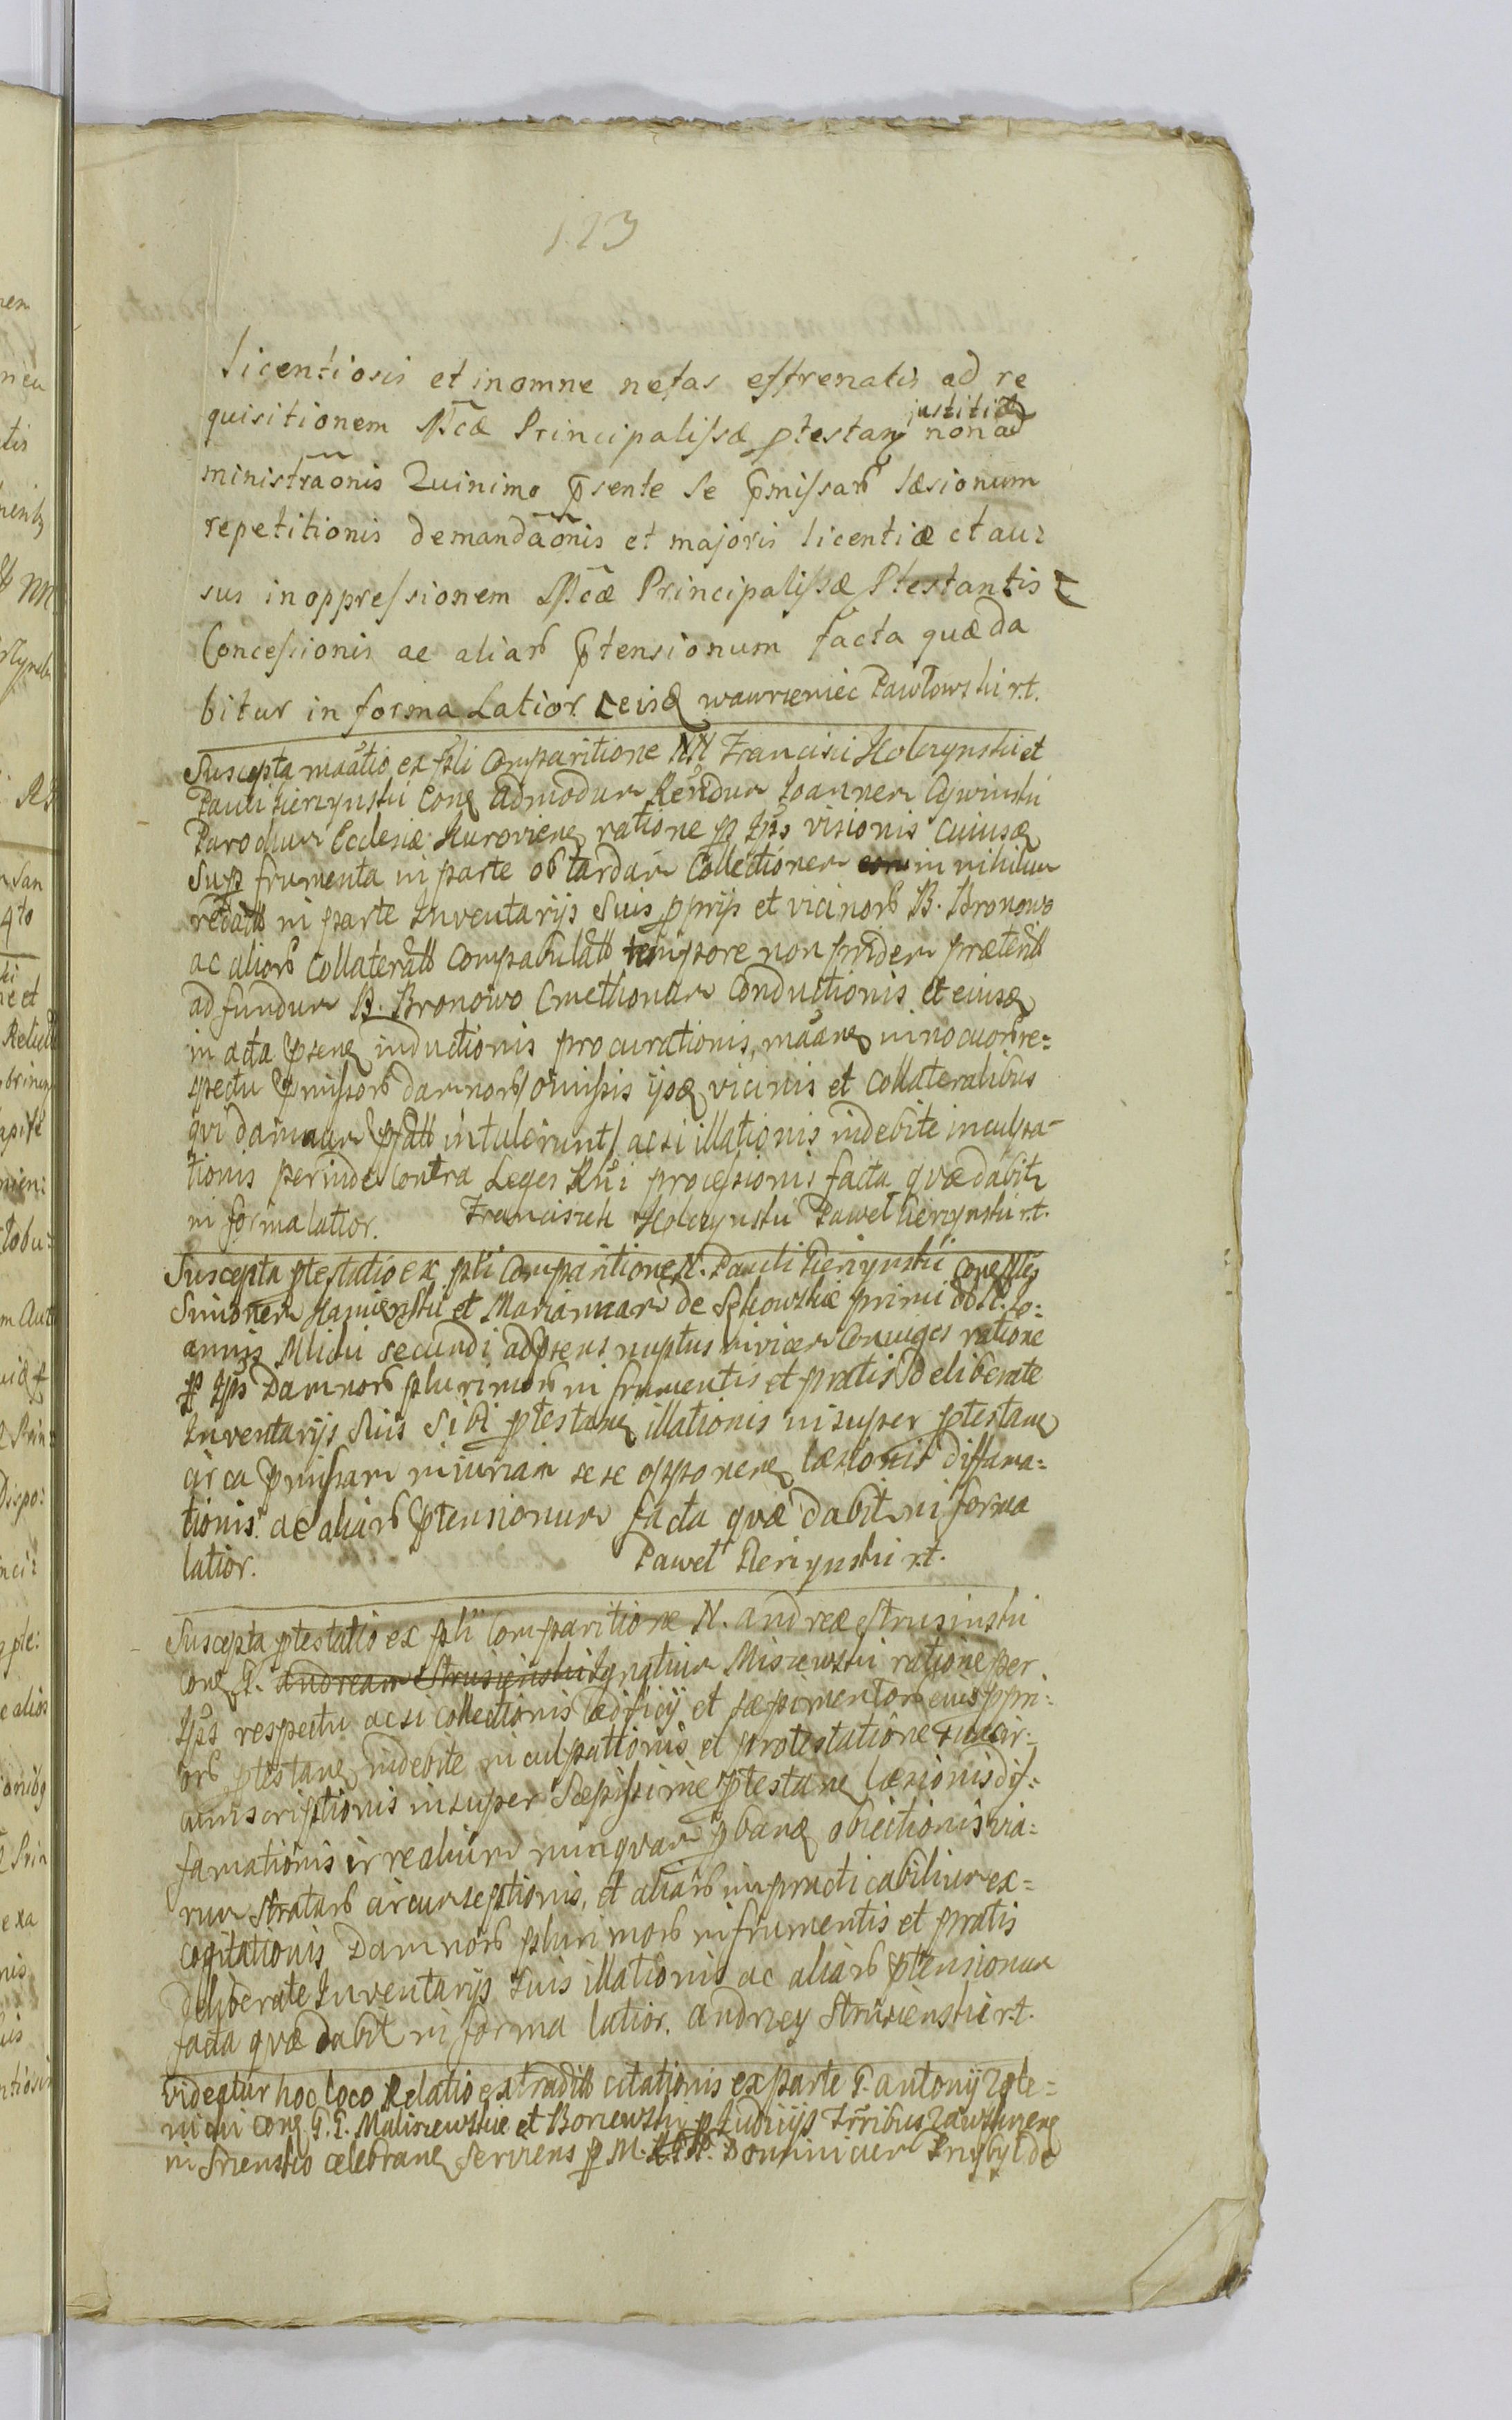 123
licentiosis et in omne nefas effrenatis ad re
quisitionem Mcæ Principalissæ ptestan justitiæ non ad
ministraonis Quinimo psente se pmissarb læsionum
repetitionis demandaonis et majoris licentiæ et au:
sus in oppressionem Mcæ Principalissæ Ptestantis
Concessionis ac aliarb ptensionum facta quæ da
bitur in forma Latior. eisq wawrzeniec Pawłowski r.t.
Suscepta mãatio ex psli Comparitione NN Francisci Holczynski et
Pauli Cierzynski Con admodum Rendum Joannem Cywinski
Parochum Ecclesiæ Kurovien ratione p Ips visionis cuiusq
Sup frumenta in parte ob tardam Collectionem in nihilum
redatb in parte Inventarijs suis pprijs et vicinorb B. Bronowo
ac aliorb Collateralb Compabulatb tempore non pridem prætenb
ad fundum B. Bronowo Conductionis et eiusq
in acta psen inductionis procurationis, mãan in no cuorb re=
spectu pmissorb damnorb / omissis ijsq vicinis et Collateralibus
qui damnum pfatb intulerunt / ac si illationis indebite inculpa-
tionis perinde contra Leges Rni processionis facta quæ dabit
in forma latior. Franciszek Holczynski Paweł Cierzynski r.t.
Suscepta ptestatio ex psli Comparitione N. Pauli Cierzynski con Nles
Simonem Kamienski et Mariannam de primi ob N. Jo:
annis Mlicki secundi ad psens nuptus vivicem Coniuges ratione
p Ips Damnorb plurimorb in frumentis et pratis deliberate
Inventarijs Suis Sibi ptestan illationis insuper ptestan
circa pmissam iniuriam sese opponen læsionis diffama=
tionis ac aliarb ptensionum facta quæ dabit in forma
latior. Paweł Cierzynski r.t.
Suscepta ptestatio ex psli Comparitione N. andreæ Strusinski
con G. andream Strusienski Ignatium Miszewski ratione per
Ips respectu ac si collectionis ædificij et sæpimentorb eius ppri:
orb ptestan indebite inculpationis et protestatione cir:
cumscriptionis insuper Sæpissime ptestan læsionis dif:
famationis irrealium nunquam pban obiectionis via:
rum Stratarb circumseptionis, et aliarb impracticabilium ex=
cogitationis Damnorb plurimorb in frumentis et pratis
deliberate Inventarijs Suis illationis ac aliarb ptensionum
facta quæ dabit in forma latior. andrzey Strusienski r.t.
videatur hoc loco Relatio extraditb citationis ex parte G. antonij Zole=
nicki con G.G. Maliszewskie et Boniewski p Judicijs Trribus Zawskrzen
in Srzensko celebran Serviens p M. Dominicum Przybyl de